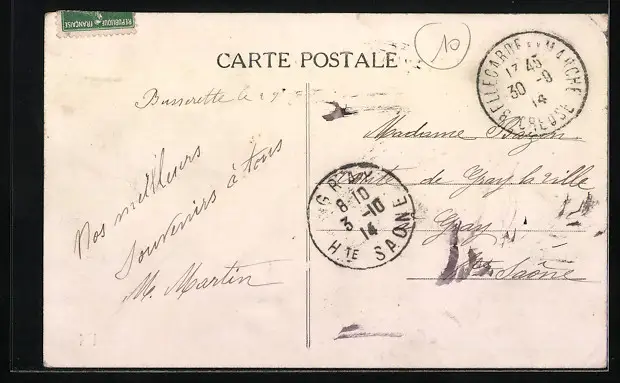 REPUBLIQUE FRANÇAISE
10
CARTE POSTALE
BELLEGARDE-EN-MARCHE
17 45
30 -9
14
CREUSE
Busserette le 29
Madame
Route de Gray la ville
Gray
Hte Saône
GRAY
8-10
3 -10
14
HTE SAONE
Nos meilleurs
souvenirs à tous
M. Martin